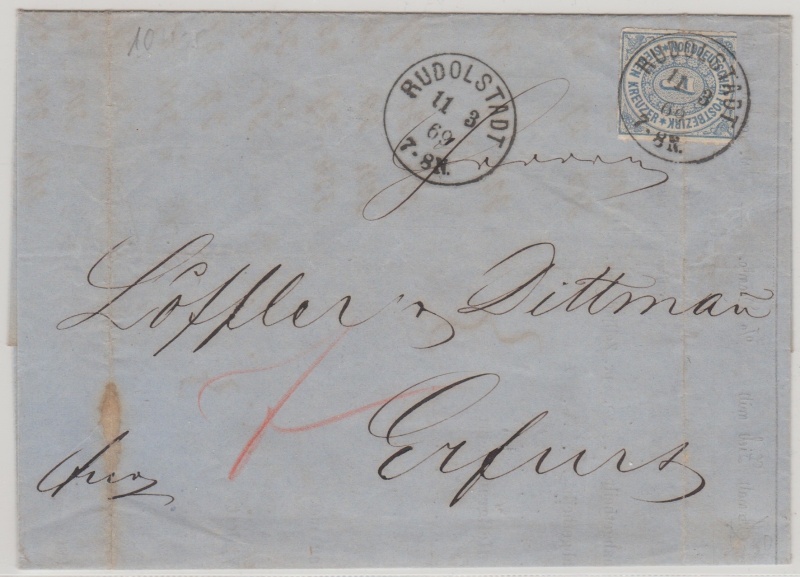 10
RUDOLSTADT
11 3
69
7-8N.
NORDDEUTSCHER POSTBEZIRK * SIEBEN KREUZER *
7
RUDOLSTADT
11 3
69
7-8N.
Herren
Löffler & Dittmar
7
Erfurt
frco